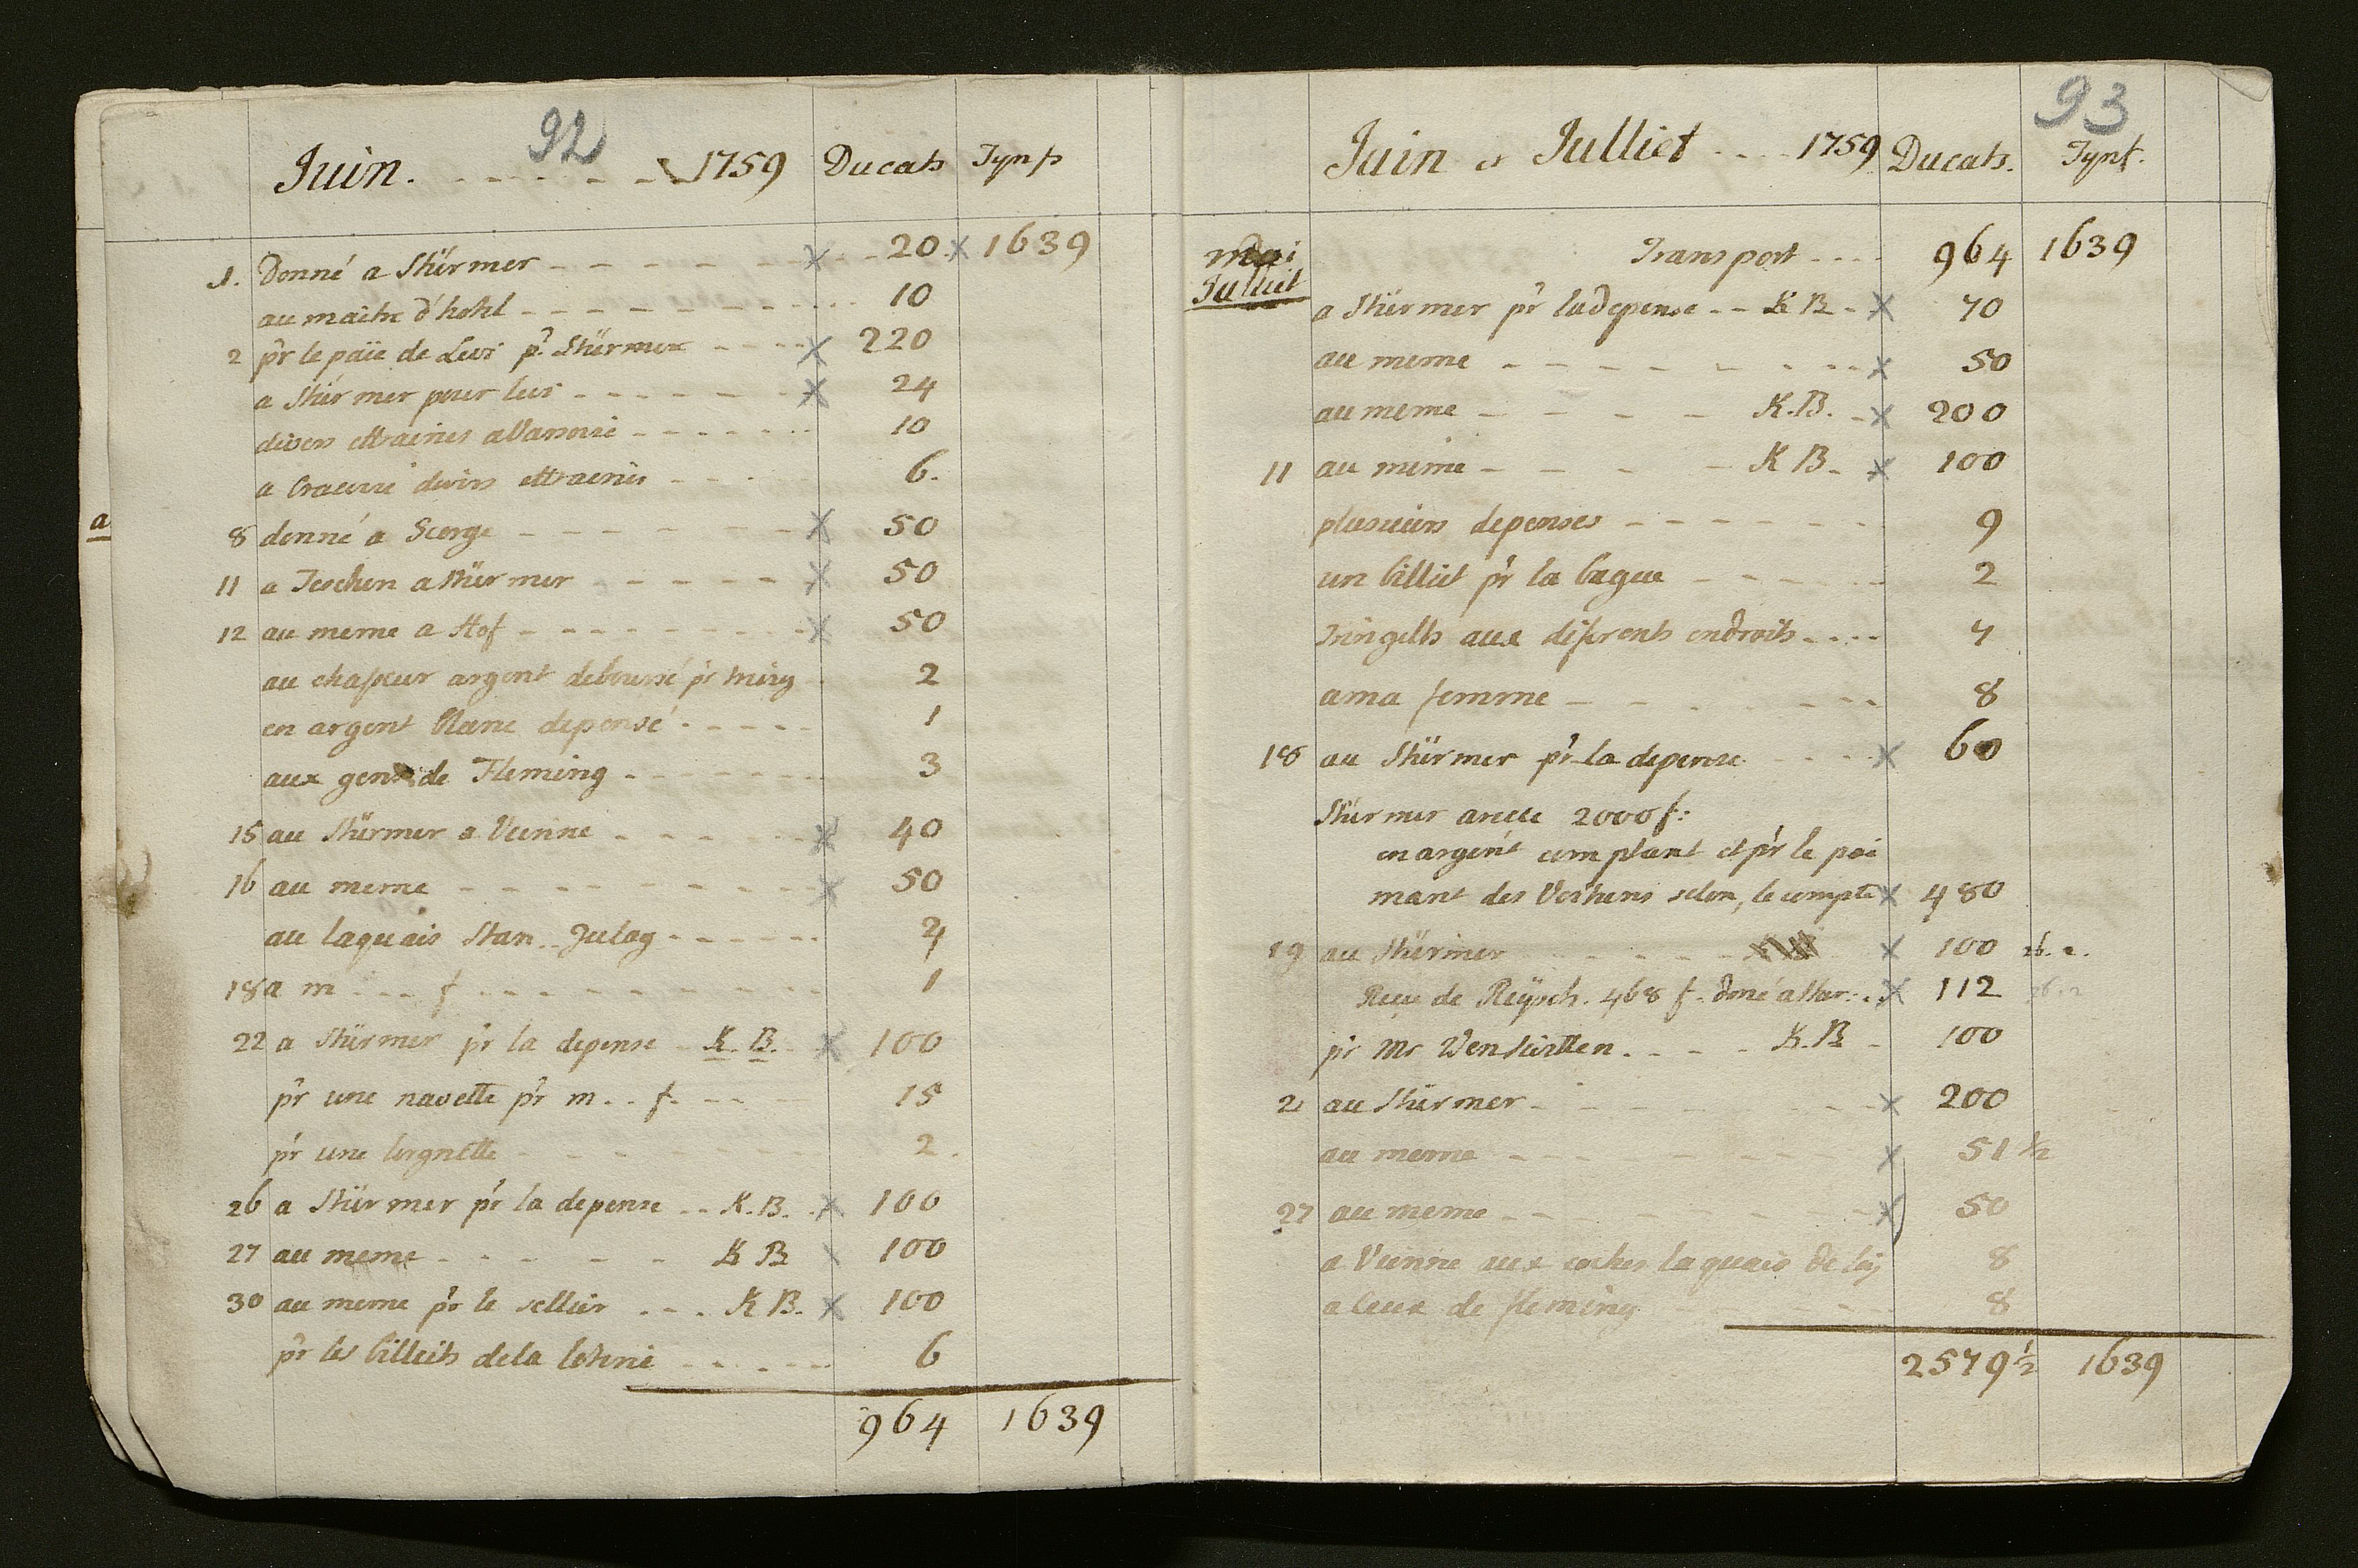 92
Juin. 1759 Ducats Tynfs
1. Donné a Stürmer 20 1639
au maitre d'hotel 10
2 pr le païe de Leur pr Stürmer 220
a Stürmer pour lui 24
divers ettraines a Varsovie 10
a Cracovie divers ettraines 6.
a
8 donné a George 50
11 a Teschen a Stürmer 50
12 au meme a Hof 50
au chasseur argent deboursé pr 2
en argent blanc depensé 1
aux gens de Fleming 3
15 au Stürmer a Vienne 40
16 au meme 50
au laquais Stan.
18 a m... f 1
22 a Stürmer pr la depense K. B. 100
pr une navette pr m.. f. 15
pr une lorgnette 2.
26 a Stürmer pr la depense K.B. 100
27 au meme K B 100
30 au meme pr le sellier K B. 100
pr les billiets de la loterie 6
964 1639
93
Juin et Julliet 1759 Ducats. Tynf.
mai Transport 964 1639
Julliet
a Stürmer pr la depense K B 70
au meme 50
au meme K.B. 200
11 au meme K B 100
plusieurs depenses 9
un billiet pr la bague 2
Tringelts aux diferents endroits 7
a ma femme 8
18 au Stürmer pr la depense 60
Stürmer a recu 2000 f:
en argent comptant et pr le pai
mant des selon, le compte 480
19 au Stürmer 100
Reçu de Reÿsch. 468 f. doné a Stur: 112
pr Mr K.B 100
2 au Stürmer 200
au meme 51 1/2
27 au meme 50
a Vienne aux coches laquais de 8
a ceux de fleming 8
2579 1/2 1639